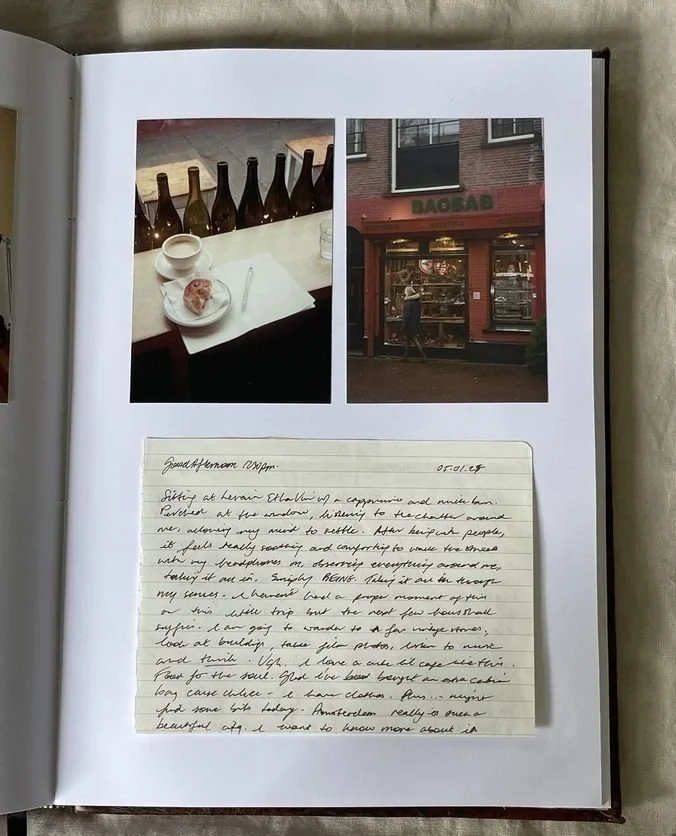 BAOBAB
Good Afternoon 1230pm. 05.01.25
Sitting at Levain Et Le Vin w/ a cappuccino and bun.
Perched at the window, listening to the chatter around
me, allowing my mind to settle. After being w/ people,
it feels really soothing and comforting to walk the streets
with my headphones on, observing everything around me,
taking it all in. Simply BEING. Taking it all in through
my senses. I haven't had a proper moment of this
on this little trip but the next few hours shall
suffice. I am going to wander to a few vintage stores,
look at buildings, take film photos, listen to music
and think. Ugh. I love a cute lil cafe like this.
Food for the soul. Glad I've bought an extra cabin
bag cause - I have clothes. Plus... might
find some bits today. Amsterdam really is such a
beautiful city. I want to know more about it